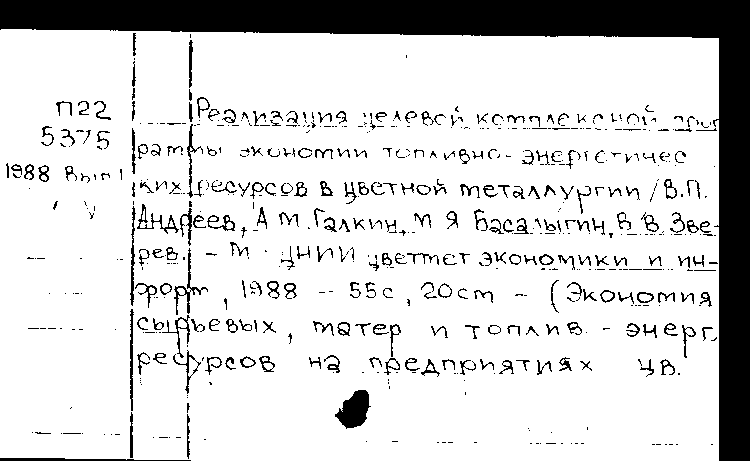 П22
5375
1988 Вып 1
Реализация целевой комплексной прог
раммы экономии топливно-энергетичес
ких ресурсов в цветной металлургии / В.П.
Андреев, А М. Галкин, М Я Басалыгин, В В Зве-
рев. - М ЦНИИ цветмет экономики и ин-
форм, 1988 - 55с, 20см - (Экономия
сырьевых, матер и топлив - энерг.
ресурсов на предприятиях цв.